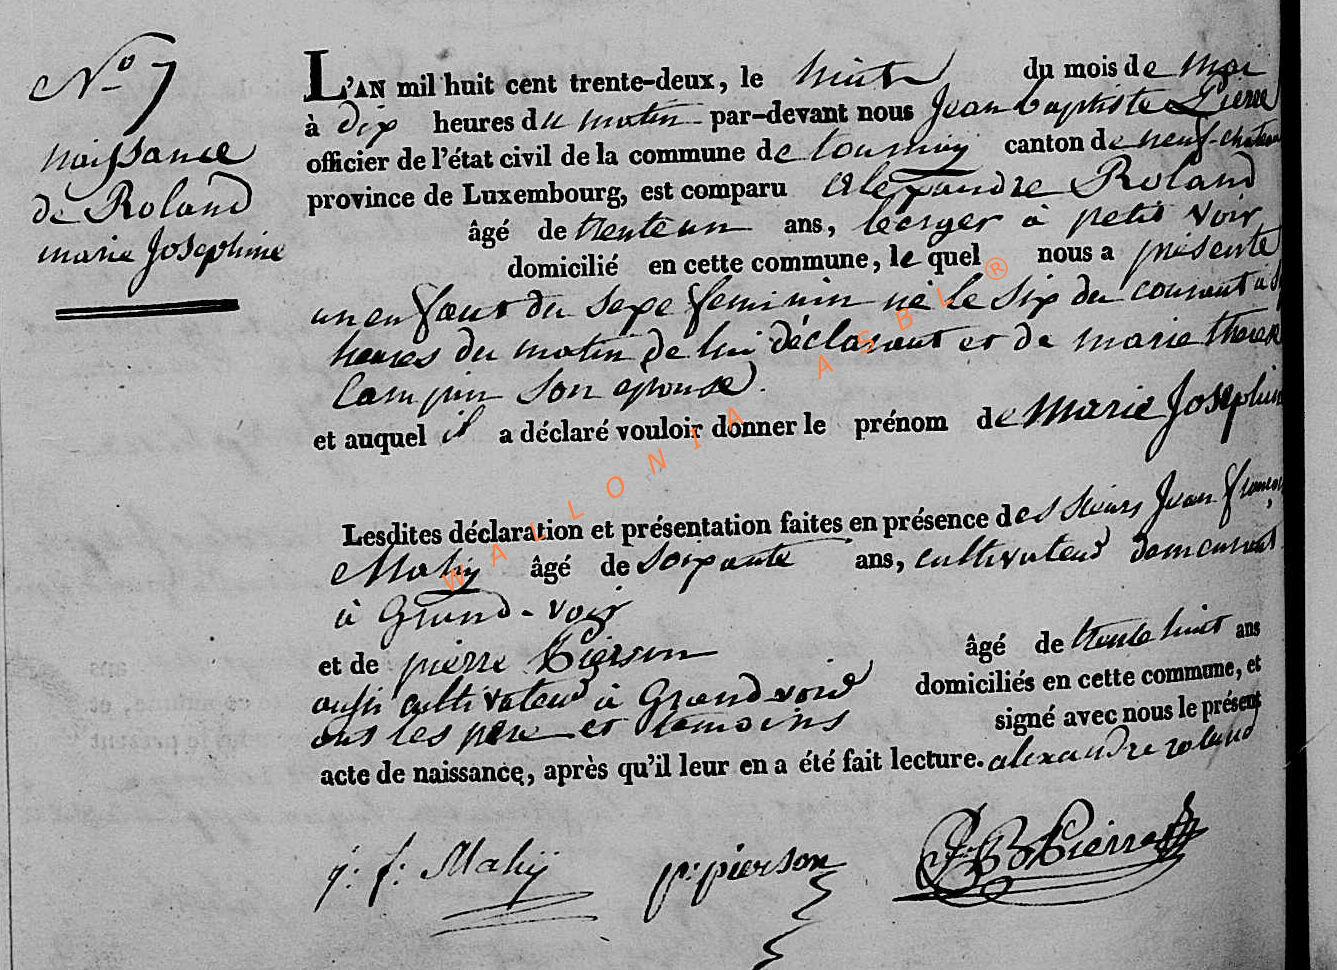 N° 7
naissance
de Roland
marie Josephine
L'AN mil huit cent trente-deux, le huit du mois de mai
à dix heures du matin par-devant nous Jean baptiste Pierre
officier de l'état civil de la commune de tournay canton de neuf-chateau
province de Luxembourg, est comparu Alexandre Roland
âgé de trente un ans, berger à petit voir
domicilié en cette commune, le quel nous a présenté
un enfant du sexe feminin né le six du courant à
heures du matin de lui déclarant et de marie therese
Campin son epouse.
et auquel il a déclaré vouloir donner le prénom de Marie Josephine
Lesdites déclaration et présentation faites en présence des sieurs Jean françois
Mahy âgé de soixante ans, cultivateur demeurant
à Grand-voir
et de pierre Pierson âgé de trente huit ans
aussi cultivateur à Grand voir domiciliés en cette commune, et
ont les père et temoins signé avec nous le présent
acte de naissance, après qu'il leur en a été fait lecture. alexandre roland
j: f: Mahy p: pierson J. B. Pierre
WALLONIA ASBL ®